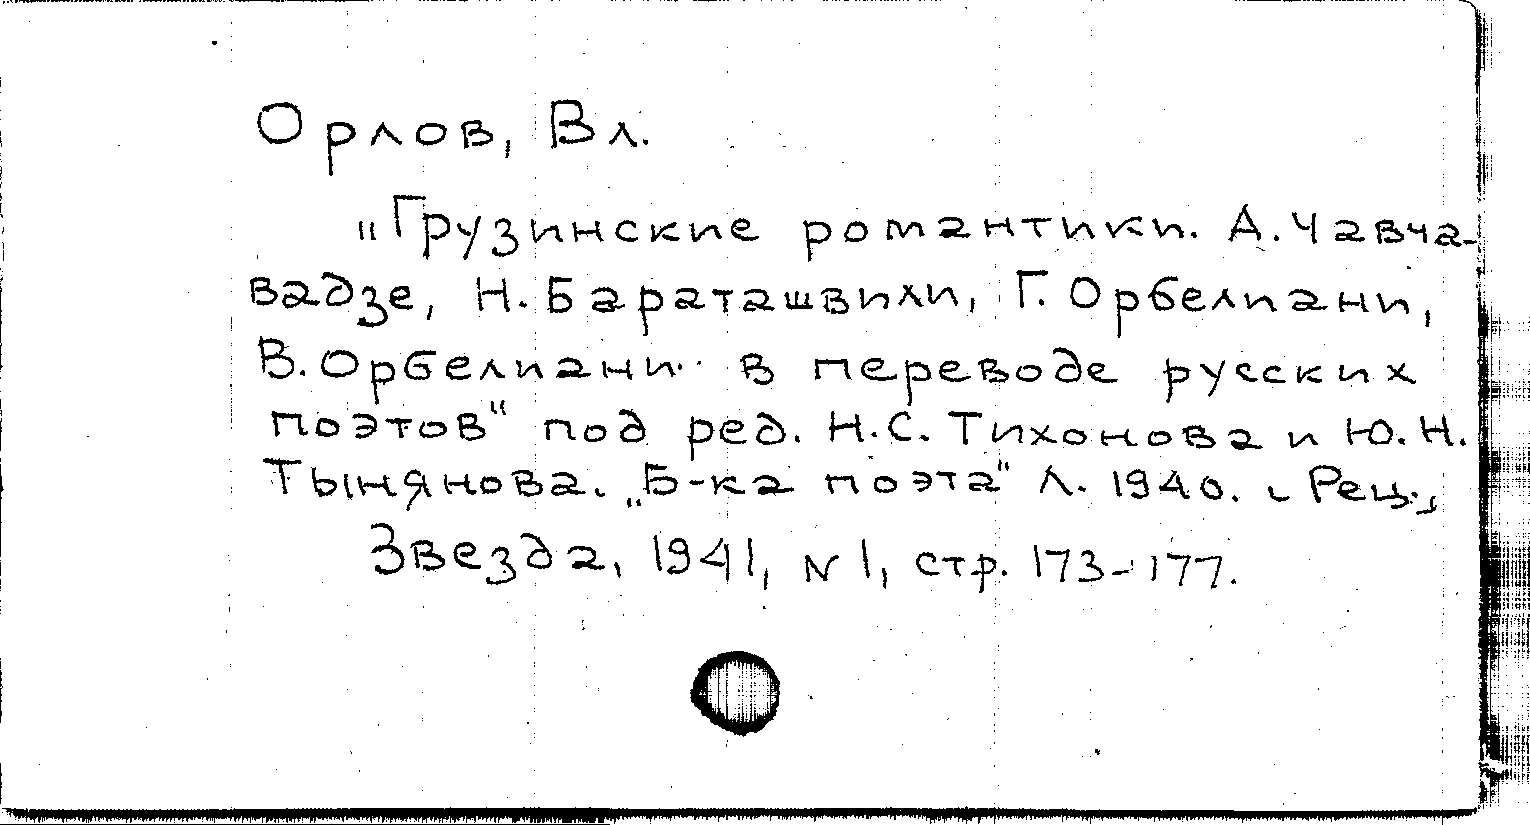 Орлов, Вл.
"Грузинские романтики. А. Чавча-
вадзе, Н. Бараташвили, Г. Орбелиани,
В. Орбелиани в переводе русских
поэтов" под ред. Н.С. Тихонова и Ю.Н.
Тынянова. „Б-ка поэта" Л. 1940. Рец.,
Звезда, 1941, N 1, стр. 173-177.